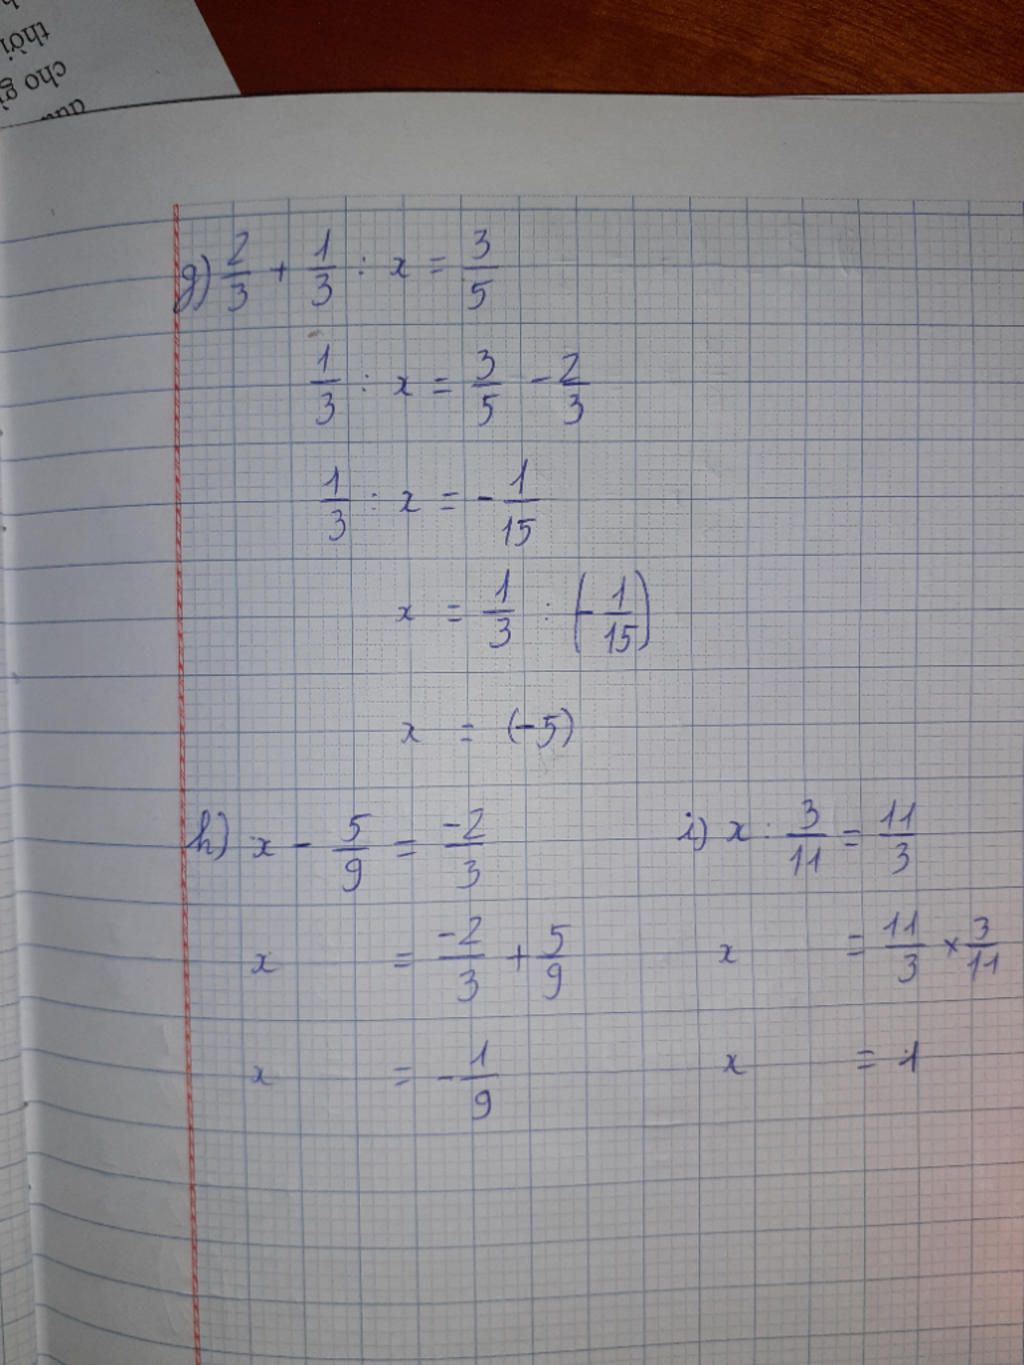 thời
cho gi
g) 2/3 + 1/3 : x = 3/5
1/3 : x = 3/5 - 2/3
1/3 : x = - 1/15
x = 1/3 : (- 1/15)
x = (-5)
h) x - 5/9 = -2/3
x = -2/3 + 5/9
x = - 1/9
i) x : 3/11 = 11/3
x = 11/3 × 3/11
x = 1